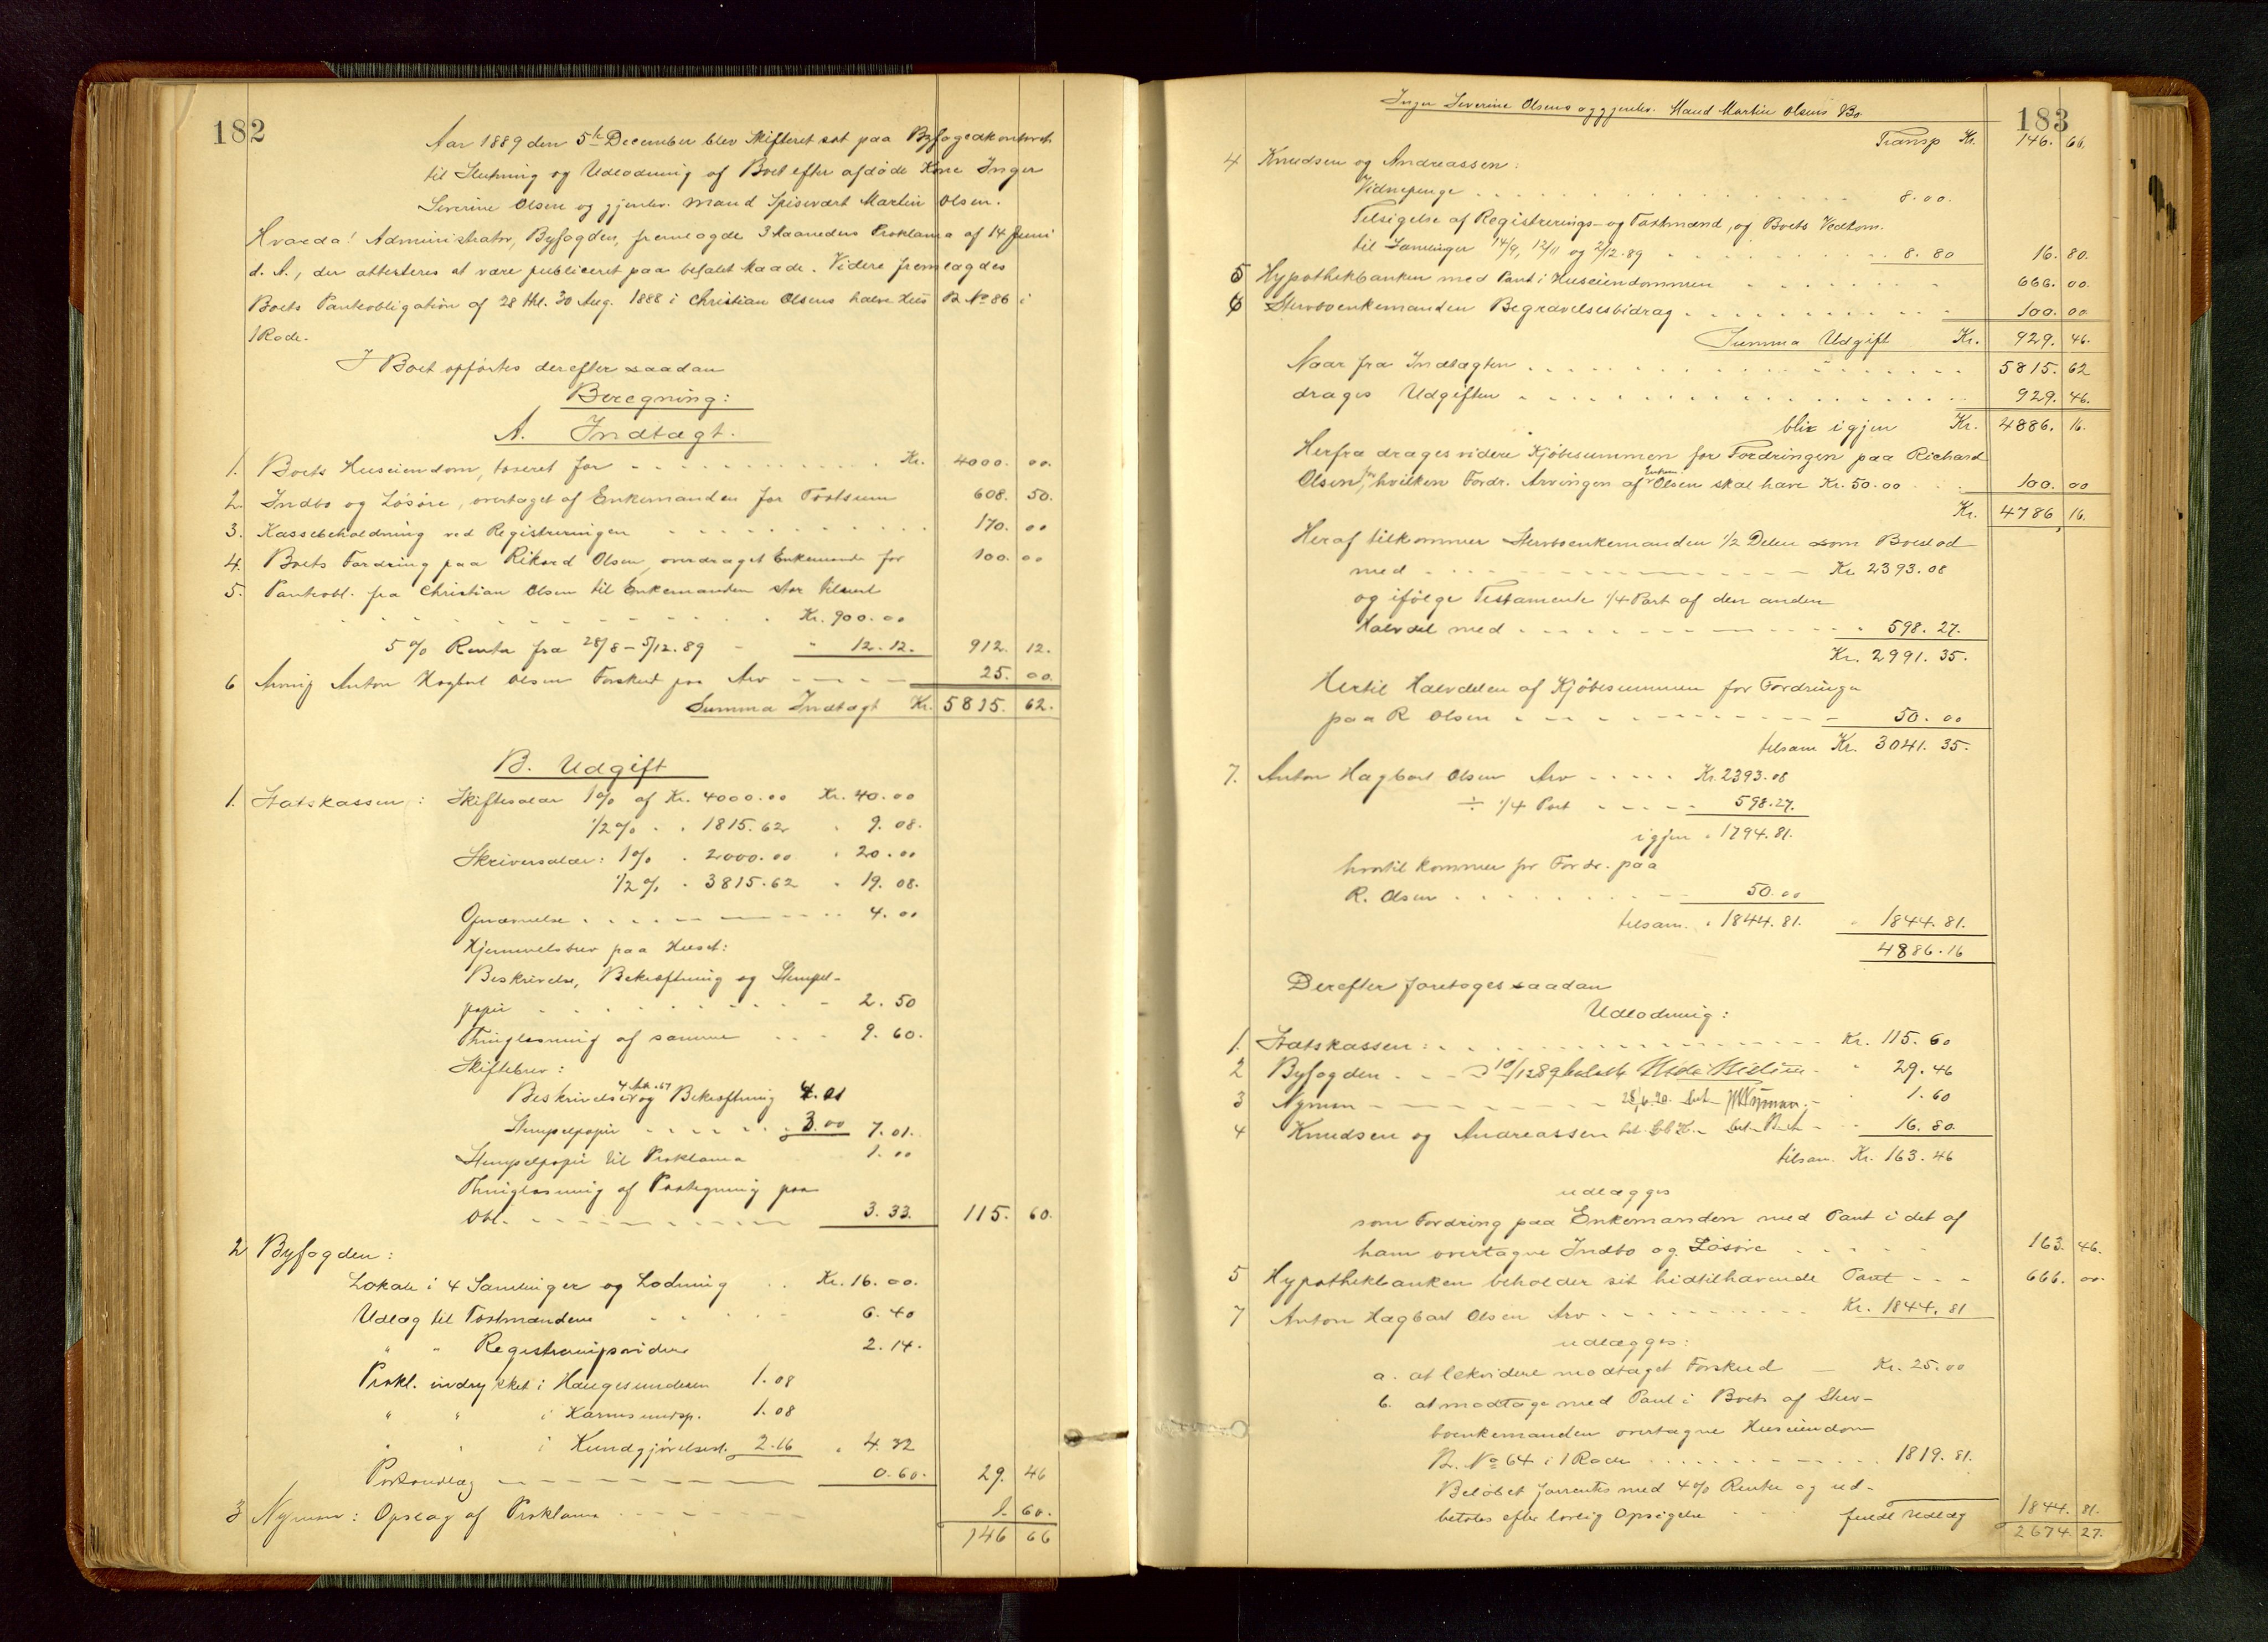 182
Aar 1889 den 5te December blev Skifteret sat paa Byfogedkontoret
til Slutning og Udlodning af Boet efter afdøde Kone Inger
Severine Olsen og gjenlev. Mand Spisevært Martin Olsen.
Hvorda! Administrator, Byfogden, fremlagde 3 Maaneders Proklama af 14 Juni
d. A., der atteteres at være publiceret paa befalet Maade. Videre fremlagdes
Boets Panteobligation af 28 thl. 30 Aug. 1888 i Christian Olsens halve Hus B. No 86 i
1 Rode.
I Boet opførtes derefter saadan
Beregning:
A. Indtægt.
1. Boets Huseiendom, taxeret for Kr. 4000. 00.
2. Indbo og Løsøre, overtaget af Enkemanden for Taxtsum 608. 50.
3. Kassebeholdning ved Registreringen 170. 00
4. Boets Fordring paa Rikard Olsen, overdraget Enkemanden for 100. 00
5. Panteobl. fra Christian Olsen til Enkemanden stor tilrest
Kr. 900.00
5 % Renter fra 28/8 - 5/12. 89 " 12.12. 912. 12.
6 Arving Anton Hagbart Olsen Forskud paa Arv 25. 00.
Summa Indtægt Kr. 5815. 62.
B. Udgift
1. Statskassen: Skiftesalær 1% af Kr. 4000.00 Kr. 40.00
1/2 % " " 1815.62 " 9. 08.
Skriversalær: 1% " 2000.00 " 20.00
1/2 % " 3815.62 " 19. 08.
Opnævnelse 4.00
Hjemmelsbrev paa Huset:
Beskrivelse, Bekræftning og Stempel-
papir 2.50
Thinglæsning af samme 9.60.
Skiftebrev:
Beskrivelse og Bekræftning 4.01
Stempelpapir 3.00 7.01.
Stempelpapir til Proklama 1.00
Thinglæsning af Paategning paa
Obl. 3.33. 115. 60.
2 Byfogden:
Lokale i 4 Samlinger og Lodning Kr. 16.00.
Udlæg til Taxtmændene 6.40
" " Registreringsvidner 2.14.
Prokl. indrykket i Haugesunderen 1.08
" " i Karmsundsp. 1.08
" " i Kundgjørelsest. 2.16 " 4.32
Portoudlæg 0.60. 29. 46
3 Nyman: Opslag af Proklama 1. 60.
146 66
Inger Severine Olsens og gjenlev. Mand Martin Olsens Bo. 183
Transp Kr. 146. 66.
4 Knudsen og Andreassen:
Vidnepenge 8.00.
Tilsigelse af Registrerings- og Taxtmænd, og Boets Vedkom.
til Samlinger 14/9, 12/11 og 2/12.89 8.80 16. 80.
5 Hypothekbanken med Pant i Huseiendommen 666. 00.
6 Stervboenkemanden Begravelsesbidrag 100. 00
Summa Udgift Kr. 929. 46.
Naar fra Indtægten 5815. 62
drages Udgiften 929. 46.
blir igjen Kr. 4886. 16.
Herfra drages videre Kjøbesummen for Fordringen paa Richard
Olsen, for hvilken Fordr. Arvingen af Olsen skal have Kr. 50.00 100. 00
Kr. 4786 16.
Heraf tilkommer Stervboenkemanden 1/2 Delen som Boeslod
med Kr. 2393.08
og ifølge Testamente 1/4 Part af den anden
Halvdel med 598.27.
Kr. 2991.35.
Hertil Halvdelen af Kjøbesummen for Fordringen
paa R Olsen 50.00
tilsam Kr. 3041.35.
7. Anton Hagbart Olsen Arv Kr. 2393.08
÷ 1/4 Part 598.27.
igjen " 1794.81.
hvortil kommer for Fordr. paa
R. Olsen 50.00
tilsam. " 1844.81. " 1844.81.
4886.16
Derefter foretages saadan
Udlodning:
1. Statskassen: Kr. 115.60
2 Byfogden 10/12 89 " 29.46
3 Nyman 28/6.90. bet. Nyman " 1.60
4 Knudsen og Andreassen 16.80
tilsam. Kr. 163.46
udlægges
som Fordring paa Enkemanden med Pant i det af
ham overtagne Indbo og Løsøre 163. 46.
5 Hypothekbanken beholder sit hidtilhavende Pant 666. 00.
7 Anton Hagbart Olsen Arv Kr. 1844.81
udlægges:
a. at lekvidere modtaget Forskud Kr. 25.00
b. at modtage med Pant i Boets af Sterv-
boenkemanden overtagne Huseiendom
B. No 64 i 1 Rode 1819.81.
Beløbet forrentes med 4% Rente og ud-
betales efter lovlig Opsigelse fuldt Udlæg 1844. 81.
2674. 27.